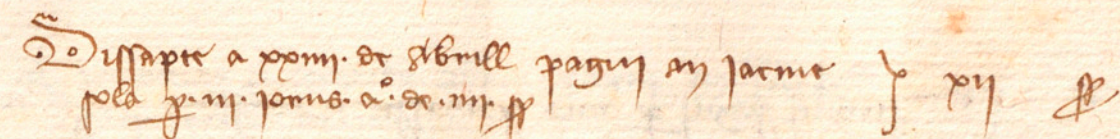 Dissapte a xxiiii. de Abrill pagui an Jacme xii ss
sola p. iii. jorns. a.º de. iiii. ss